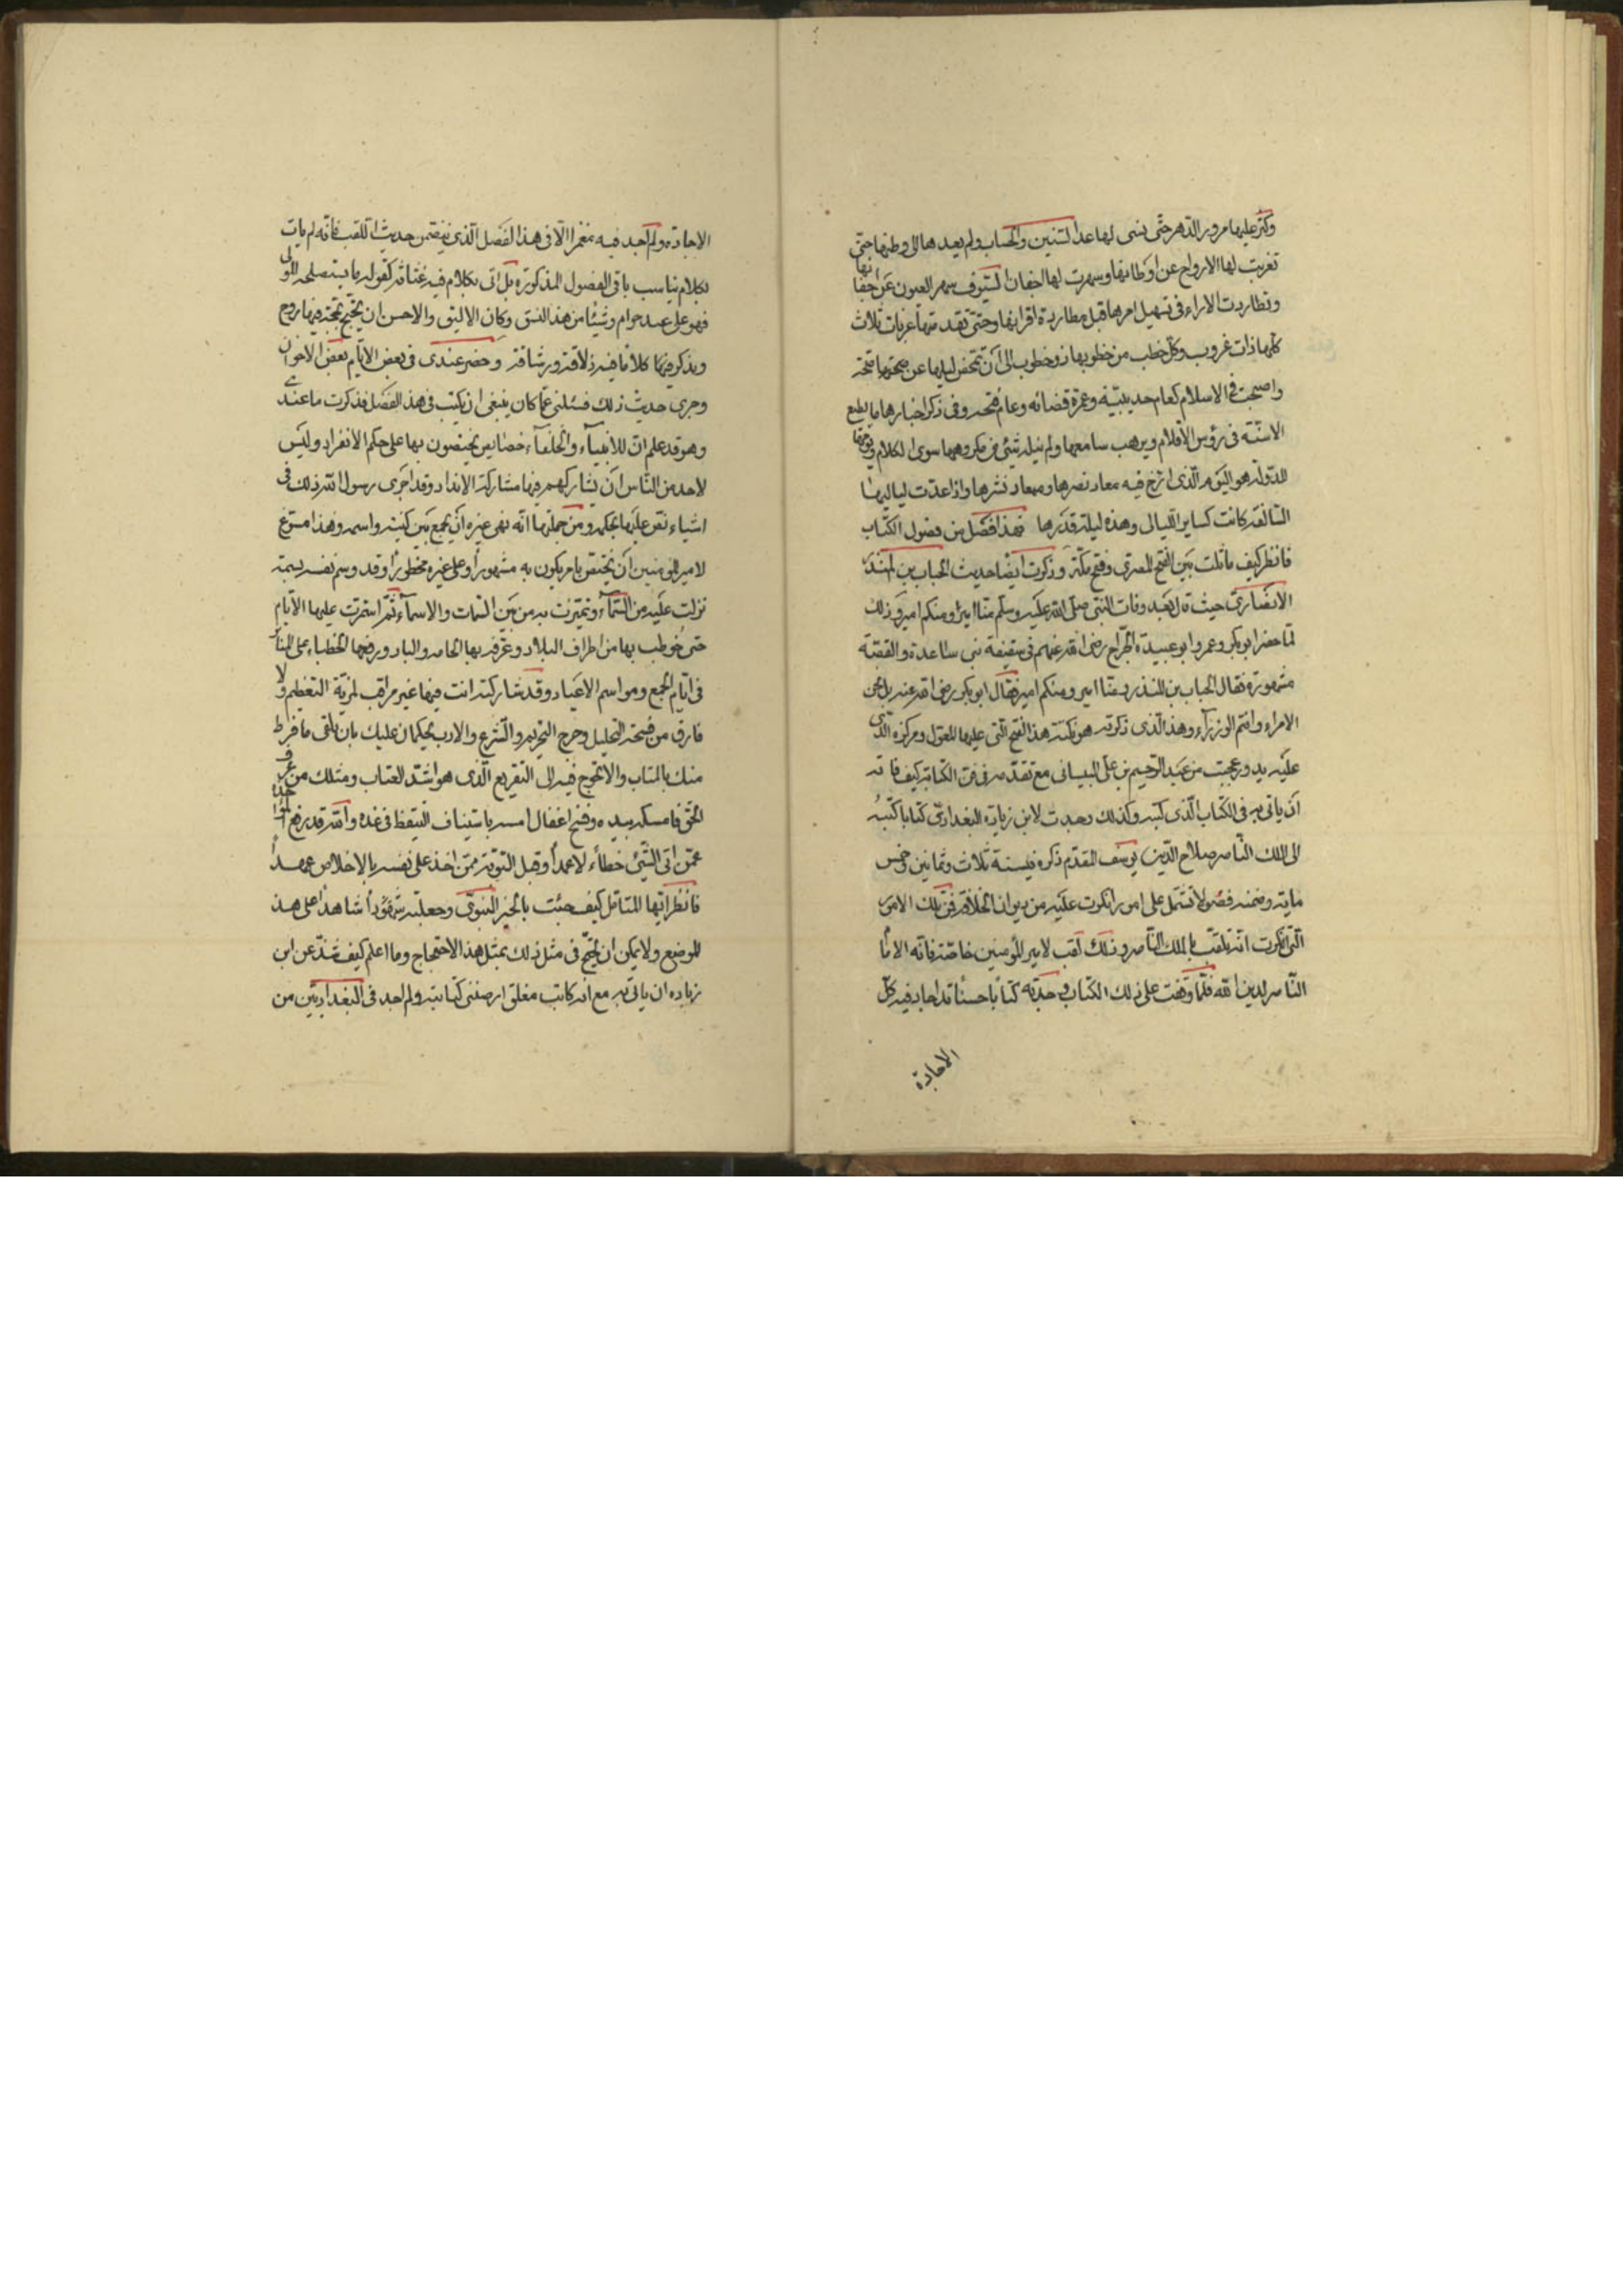 وكثر عليها مرور الدهر حتى نسى لها عدا لسنين والحساب ولم يعدها الى وطنها حتى
تغربت لها الارواح عن اوطانها وسهرت لها اجفان السيوف سهر العيون عن اجفانها
وتطاردت الاراء فى تسهيل امرها قبل مطاردة اقرانها وحتى تقدمتها غربات ثلاث
كلها ذات غروب وكل خطب من خطوبها ذو خطوب الى ان تمخض ليلها عن صبحتها
واصبحت فى الاسلام كعام حديبيّة وعمرة قضائه وعام فتحه وفى ذكر اخبارها ما يطبع
الاسنّة فى رؤس الاقلام ويرهب سامعها ولم ينله شيئ من مكروهها سوى الكلام
للدولة هو اليوم الّذى ارخ فيه معاد نصرها وميعاد نشرها واذا عدّت لياليها
السالفة كانت كساير الليالى وهذه ليلة قدرها فهذا فصل من فصول الكتاب
فانظر كيف ماثلت بين الفتح المصرى وفتح مكّة وذكرت ايضا حديث الحباب بن المنذر
الانصارىّ حيث قال بعد وفات النبى صلّى الله عليه وسلّم منّا امير ومنكم امير وذلك
لمّا حضر ابو بكر وعمر وابو عبيدة الجرّاح رضى الله عنهم فى سقيفة بنى ساعدة والقصّة
مشهورة فقال الحباب بن المنذر منّا امير ومنكم امير فقال ابو بكر رضى الله عنه بل نحن
الامراء وانتم الوزرآء وهذا الّذى ذكرته هو نكتة هذا الفتح الّتى عليها المعوّل ومركزه الّذى
عليه يدور وعجبت من عبد الرّحيم بن على البيسانى مع تقدّمه فى فنّ الكتابة كيف فاته
ان ياتى به فى الكتاب الّذى كتبه وكذلك وجدت لابن زيادة البغدادىّ كتابا كتبه
الى الملك النّاصر صلاح الدّين يوسف المقدّم ذكره فى سنة ثلاث وثمانين وخمس
ماية وضمنه فصولا تشتمل على امور انكرت عليه من ديوان الخلافة فمن تلك الامور
التى انكرت انّه تلقّب بالملك النّاصر وذلك لقب لامير المؤمنين خاصّة فانّه الامام
النّاصر لدين الله فلمّا وقفت على ذلك الكتاب وجدته كتابا حسنا قد اجاد فيه كلّ
الاجادة
الاجادة ولم اجد فيه مغمزا الّا فى هذا الفصل الّذى يتضمن حديث اللقب فانّه لم يات
بكلام يناسب باقى الفصول المذكورة بل اتى بكلام فيه غثاثة كقوله ما يستصلحه المولى
فهو على عبده حرام وشيئا من هذا النسق وكان الاليق والاحسن ان يحتج بحجّة فيها روح
ويذكر فيها كلاما فيه ذلاقة ورشاقة وحضر عندى فى بعض الايّام بعض الاخوان
وجرى حديث ذلك فسئلنى عمّا كان ينبغى ان يكتب فى هذا الفصل فذكرت ما عندى
وهو قد علم انّ للانبيآء والخلفآء خصايص يختصون بها على حكم الانفراد وليس
لاحد من النّاس ان يشاركهم فيها مشاركة الانداد وقد اجرى رسول الله ذلك فى
اشياء نصّ عليها بحكمه ومن جملتها انّه نهى غيره ان يجمع بين كنيته واسمه وهذا مسوّغ
لامير المؤمنين ان يختصّ بامر يكون به مشهورا وعلى غيره محظورا وقد وسم نفسه بسمة
نزلت عليه من السّمآء وتميّزت به من بين السّمات والاسمآء ثمّ استمرّت عليها الايّام
حتى خوطب بها من اطراف البلاد وعرّفه بها الحاضر والباد ورفعها الخطباء على المنابر
فى ايّام الجمع ومواسم الاعياد وقد شاركته انت فيها غير مراقب لمزيّة التعظيم ولا
فارق من فسحة التحليل وحرج التحريم والشرع والادب يحكمان عليك بان تلقى ما فرط
منك بالمتاب والا تحوج فيه الى التقريع الّذى هو اشدّ العتاب ومثلك من عرف
الحقّ فامسكه بيده وفسخ اغفال امسه باستيناف التيقّظ فى غده والله قد رفع المؤاخذة
عمّن اتى الشّيئ خطأ لا عمدا وقبل التوبة ممّن اخذ على نفسه بالاخلاص عهدا
فانظر ايّها المتامّل كيف جئت بالخبر النبوىّ وجعلته شاهدا على هذا
الموضع ولا يمكن ان يحتجّ فى مثل ذلك بمثل هذا الاحتجاج وما اعلم كيف شذّ عن ابن
زياده ان ياتى به مع انّه كاتب مفلق ارتضى كتابته ولم اجد فى البغداديّين من